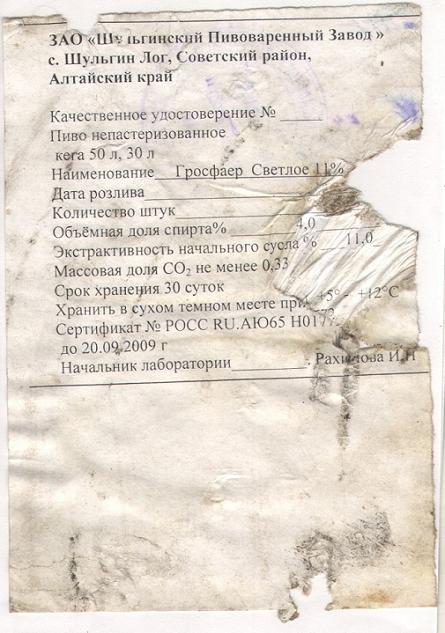 ЗАО «Шульгинский Пивоваренный Завод »
с. Шульгин Лог, Советский район,
Алтайский край
Качественное удостоверение № _____
Пиво непастеризованное
кега 50 л, 30 л
Наименование___Гросфаер Светлое 11%
Дата розлива
Количество штук
Объёмная доля спирта% 4,0
Экстрактивность начального сусла % 11,0
Массовая доля CO₂ не менее 0,33
Срок хранения 30 суток
Хранить в сухом темном месте при +5° - +12°С
Сертификат № РОСС RU.АЮ65 Н017
до 20.09.2009 г
Начальник лаборатории_________. И.Н